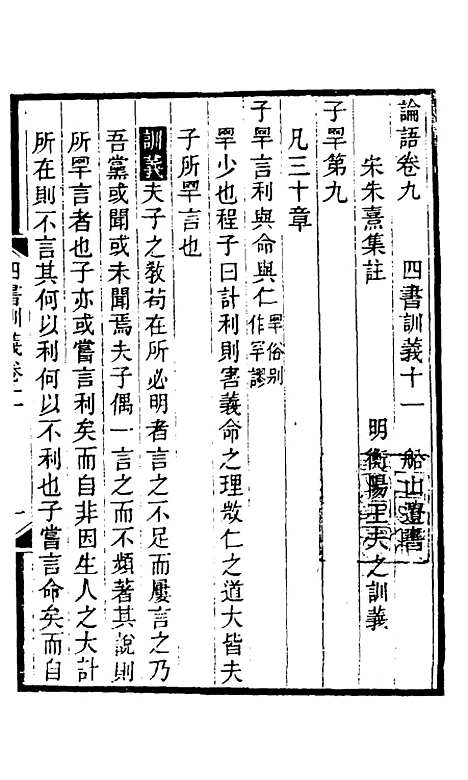 論語卷九　四書訓義十一　船山遺書
宋朱熹集註　明衡陽王夫之訓義
子罕第九
凡三十章
子罕言利與命與仁罕俗別作罕謬
罕少也程子曰計利則害義命之理微仁之道大皆夫
子所罕言也
訓義夫子之教苟在所必明者言之不足而屢言之乃
吾黨或聞或未聞焉夫子偶一言之而不頻著其說則
所罕言者也子亦或嘗言利矣而自非因生人之大計
所在則不言其何以利何以不利也子嘗言命矣而自
四書訓義卷十一
一